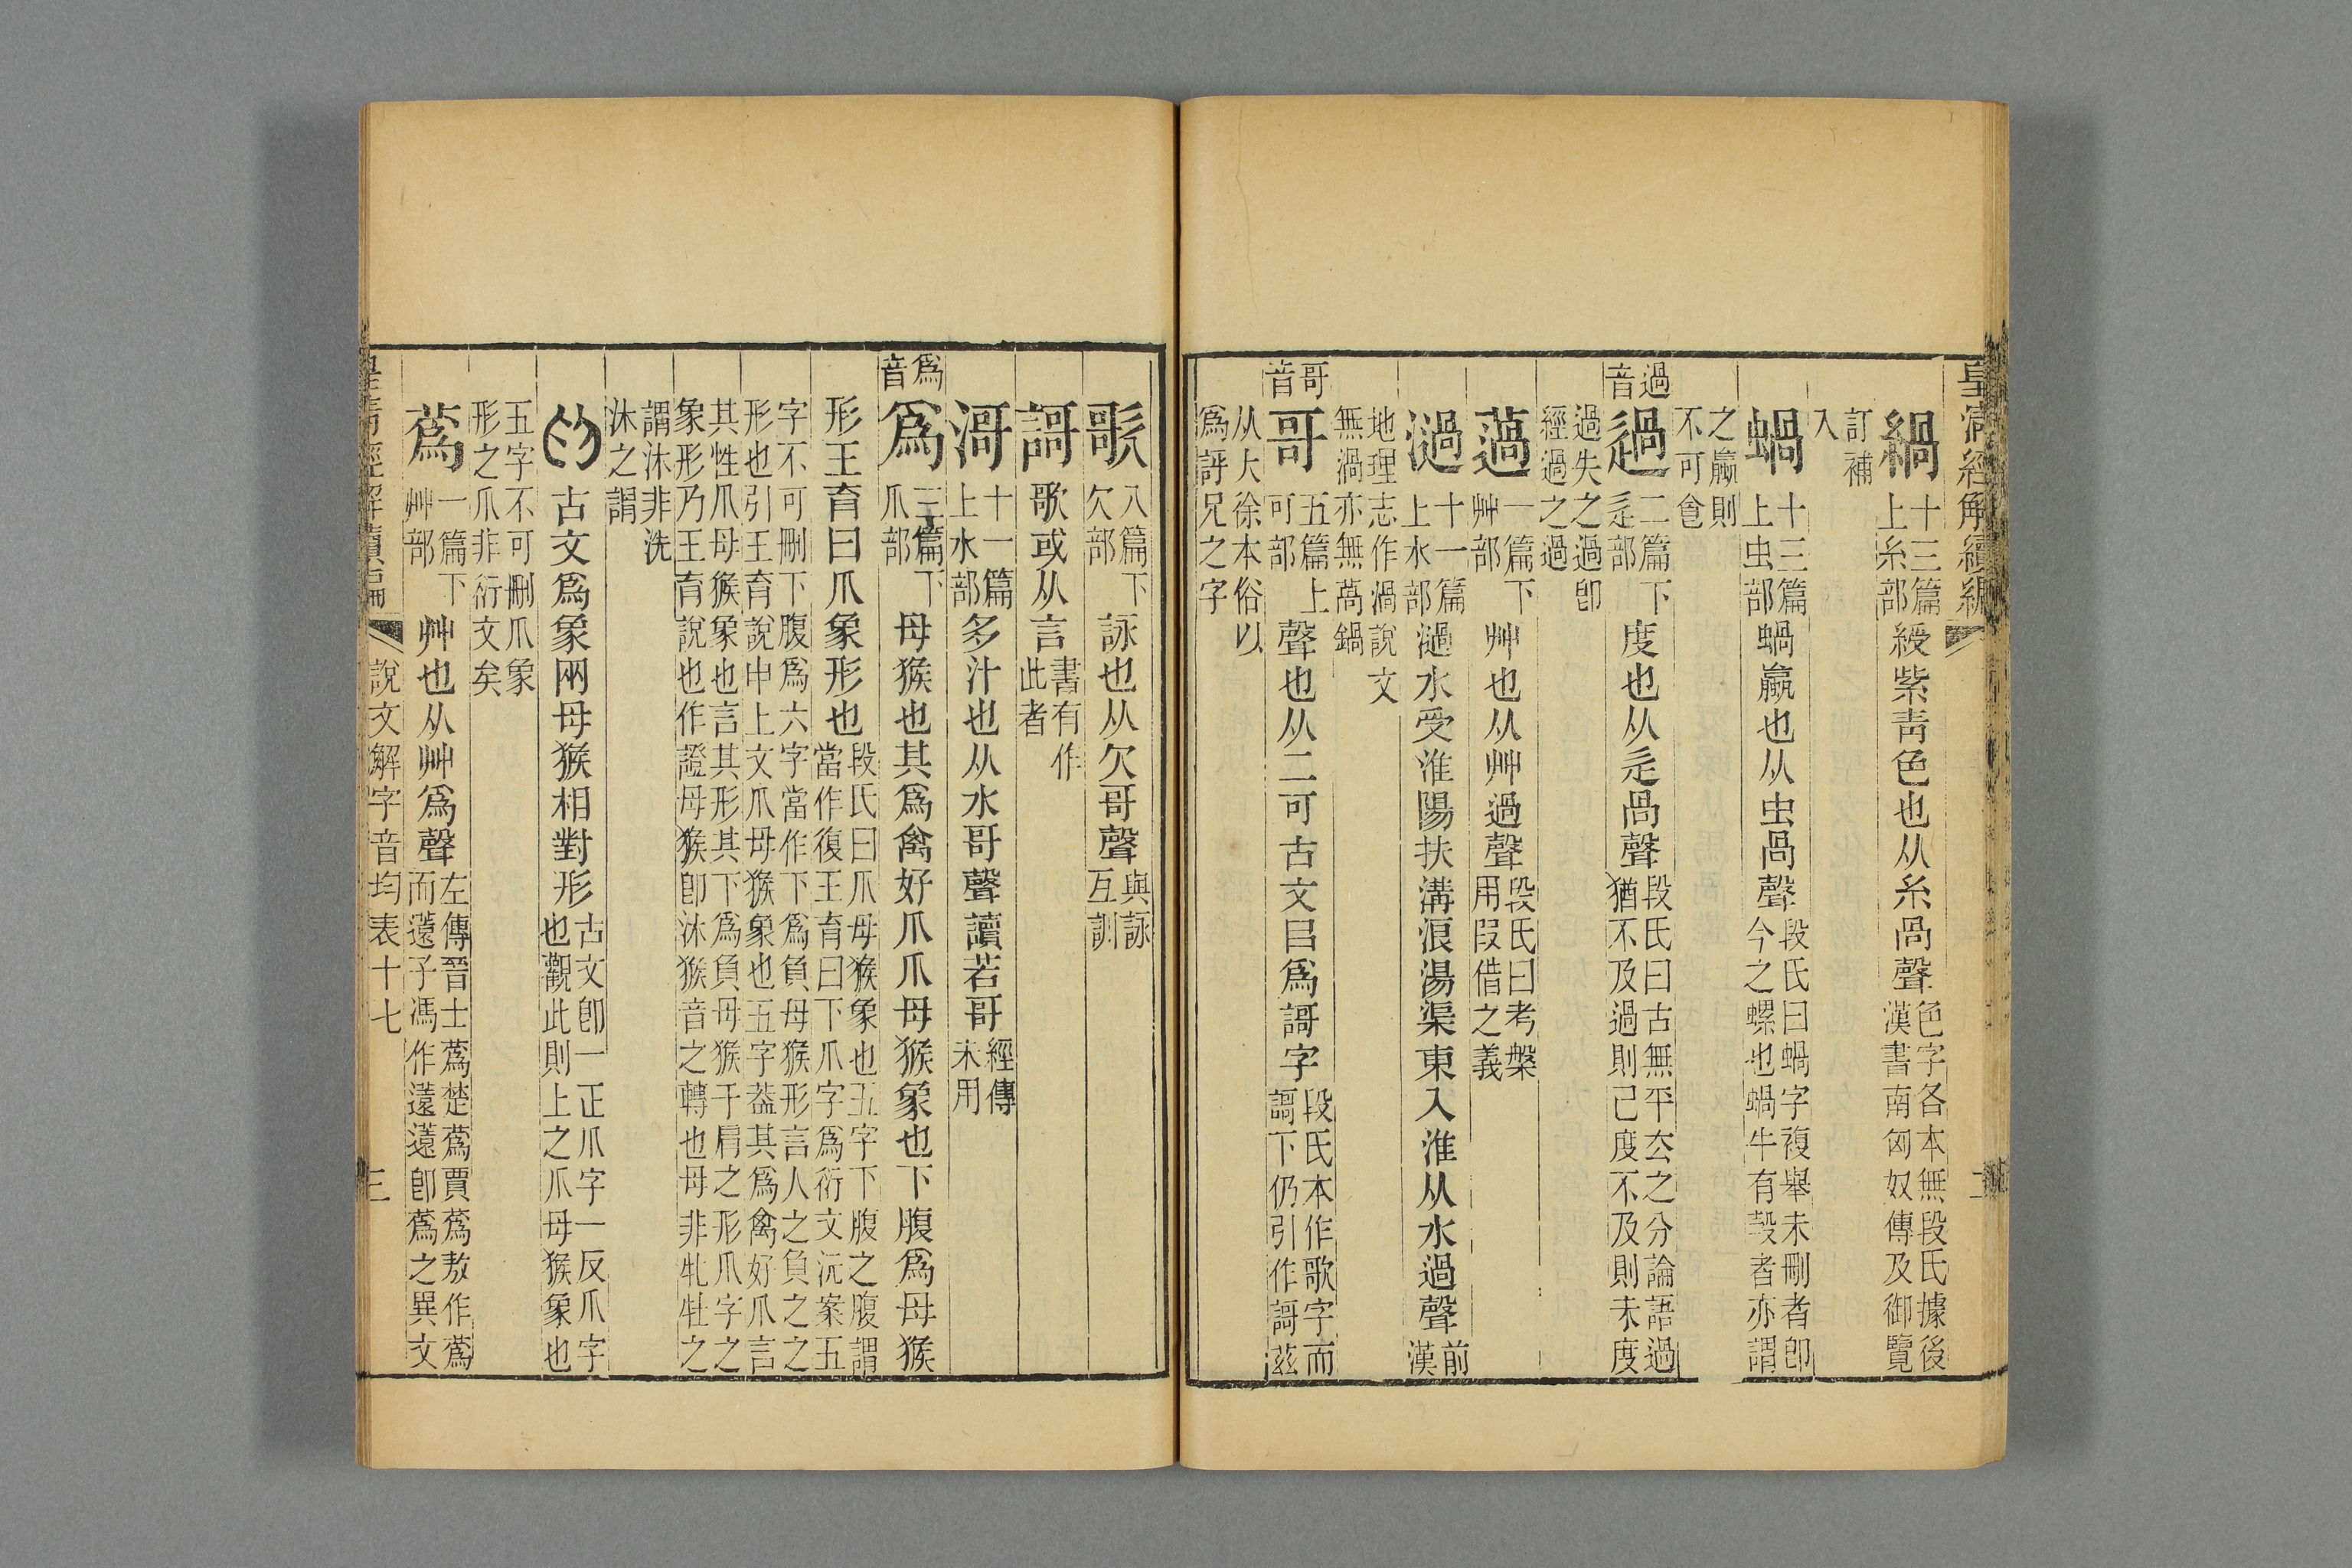 皇清經解續編
二
緺 十三篇上糸部 綬紫青色也从糸咼聲 色字各本無段氏據後漢書南匈奴傳及御覽
訂補入
蝸 十三篇上虫部 蝸蠃也从虫咼聲 段氏曰蝸字複舉未刪者卽今之螺也蝸牛有㱿者亦謂
之蠃則不可𠊧
過音 過 二篇下辵部 度也从辵咼聲 段氏曰古無平厺之分論語過猶不及過則已度不及則未度
過失之過卽經過之過
薖 一篇下艸部 艸也从艸過聲 段氏曰考槃用叚借之義
濄 十一篇上水部 濄水受淮陽扶溝浪湯渠東入淮从水過聲 前漢
地理志作渦說文無渦亦無萵鍋
哥音 哥 五篇上可部 聲也从二可古文㠯爲謌字 段氏本作歌字而謌下仍引作謌茲
从大徐本俗以爲評兄之字
歌 八篇下欠部 詠也从欠哥聲 與詠互訓
謌 歌或从言 書有作此者
滒 十一篇上水部 多汁也从水哥聲讀若哥 經傳未用
爲音 爲 三篇下爪部 母猴也其爲禽好爪爪母猴象也下腹爲母猴
形王育曰爪象形也 段氏曰爪母猴象也五字下腹之腹謂當作復王育曰下爪字爲衍文沅案五
字不可刪下腹爲六字當作下爲負母猴形言人之負之之形也引王育說申上文爪母猴象也五字葢其爲禽好爪言
其性爪母猴象也言其形其下爲負母猴于肩之形爪字之象形乃王育說也作證母猴卽沐猴音之轉也母非牝牡之
謂沐非洗沐之謂
古文爲象兩母猴相對形 古文卽一正爪字一反爪字也觀此則上之爪母猴象也
五字不可刪爪象形之爪非衍文矣
蔿 一篇下艸部 艸也从艸爲聲 左傳晉士蔿楚蔿賈蔿敖作蔿而薳子馮作薳薳卽蔿之異文
皇清經解續編
說文解字音均表十七
三